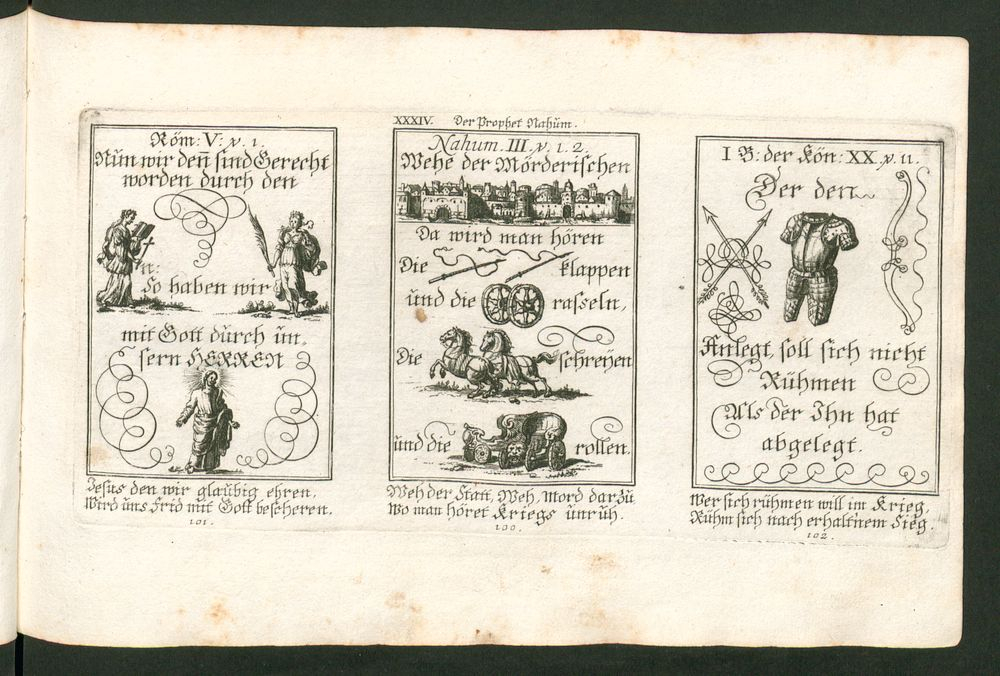 Röm: V: v. 1.
Nun wir den̄ sind Gerecht
worden durch den
n:
So haben wir
mit Gott durch un,
sern HERREN
Jesus den wir glaubig ehren,
Wird uns Frid mit Gott bescheren.
101.
XXXIV. Der Prophet Nahum.
Nahum. III. v. 1. 2.
Wehe der Mörderischen
Da wird man hören
Die klappen
und die rasseln,
Die schreyen
und die rollen.
Weh der Statt, Weh, Mord darzu
Wo man höret Kriegs unruh.
100.
I B: der Kön: XX. v. 11.
Der den
Anlegt, soll sich nicht
Rühmen
Als der Ihn hat
abgelegt.
Wer sich rühmen will im Krieg,
Rühm sich nach erhaltnem Sieg.
102.